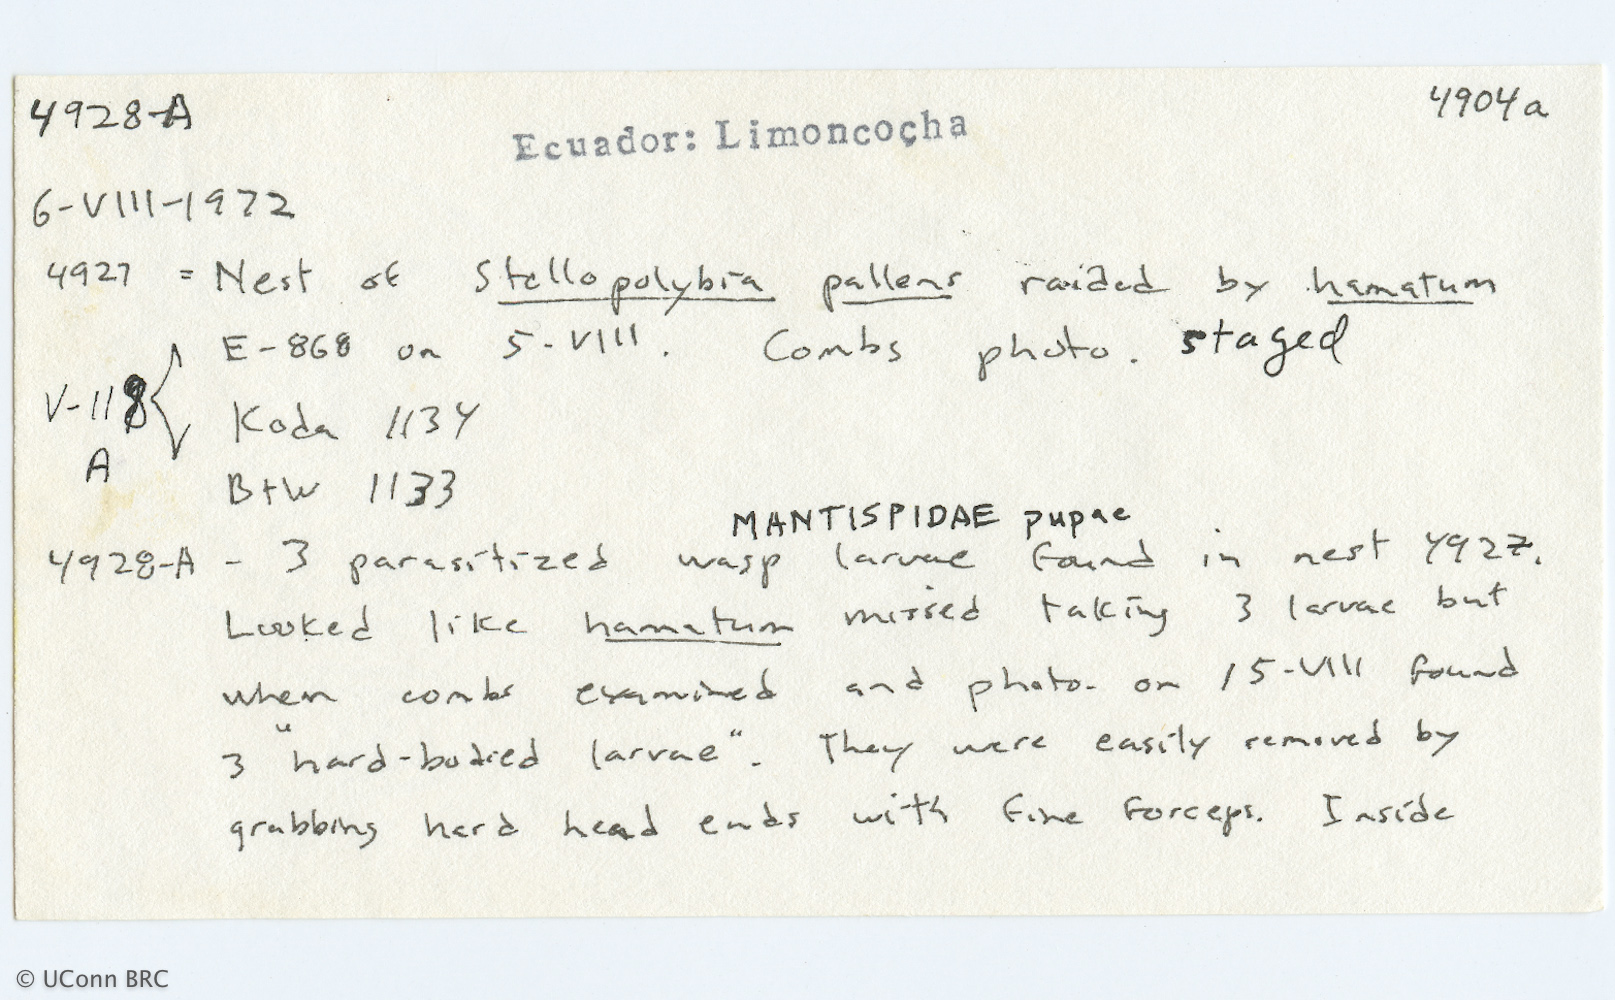 4928-A
4904a
Ecuador: Limoncocha
6-VIII-1972
4927 = Nest of Stellopolybia pallens raided by hamatum
E-868 on 5-VIII. Combs photo. staged
V-118
A
Koda 1134
B+W 1133
MANTISPIDAE pupae
4928-A - 3 parasitized wasp larvae found in nest 4927.
Looked like hamatum missed taking 3 larvae but
when combs examined and photo. on 15-VIII found
3 "hard-bodied larvae". They were easily removed by
grabbing hard head ends with fine forceps. Inside
© UConn BRC